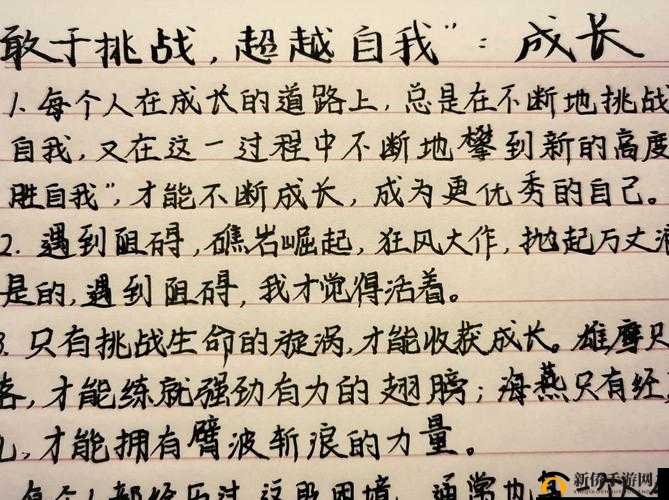 敢于挑战,超越自我”:成长
1.每个人在成长的道路上,总是在不断地挑战
自我,又在这一过程中不断地攀到新的高度
胜自我”,才能不断成长,成为更优秀的自己。
2.遇到阻碍,礁岩崛起,狂风大作,抛起万丈
是的,遇到阻碍,我才觉得活着。
3.只有挑战生命的旋涡,才能收获成长。雄鹰只
才能练就强劲有力的翅膀;海燕只有经
才能拥有臂波斩浪的力量。
每个人都经历过这段困境,通常也是
新侨手游网